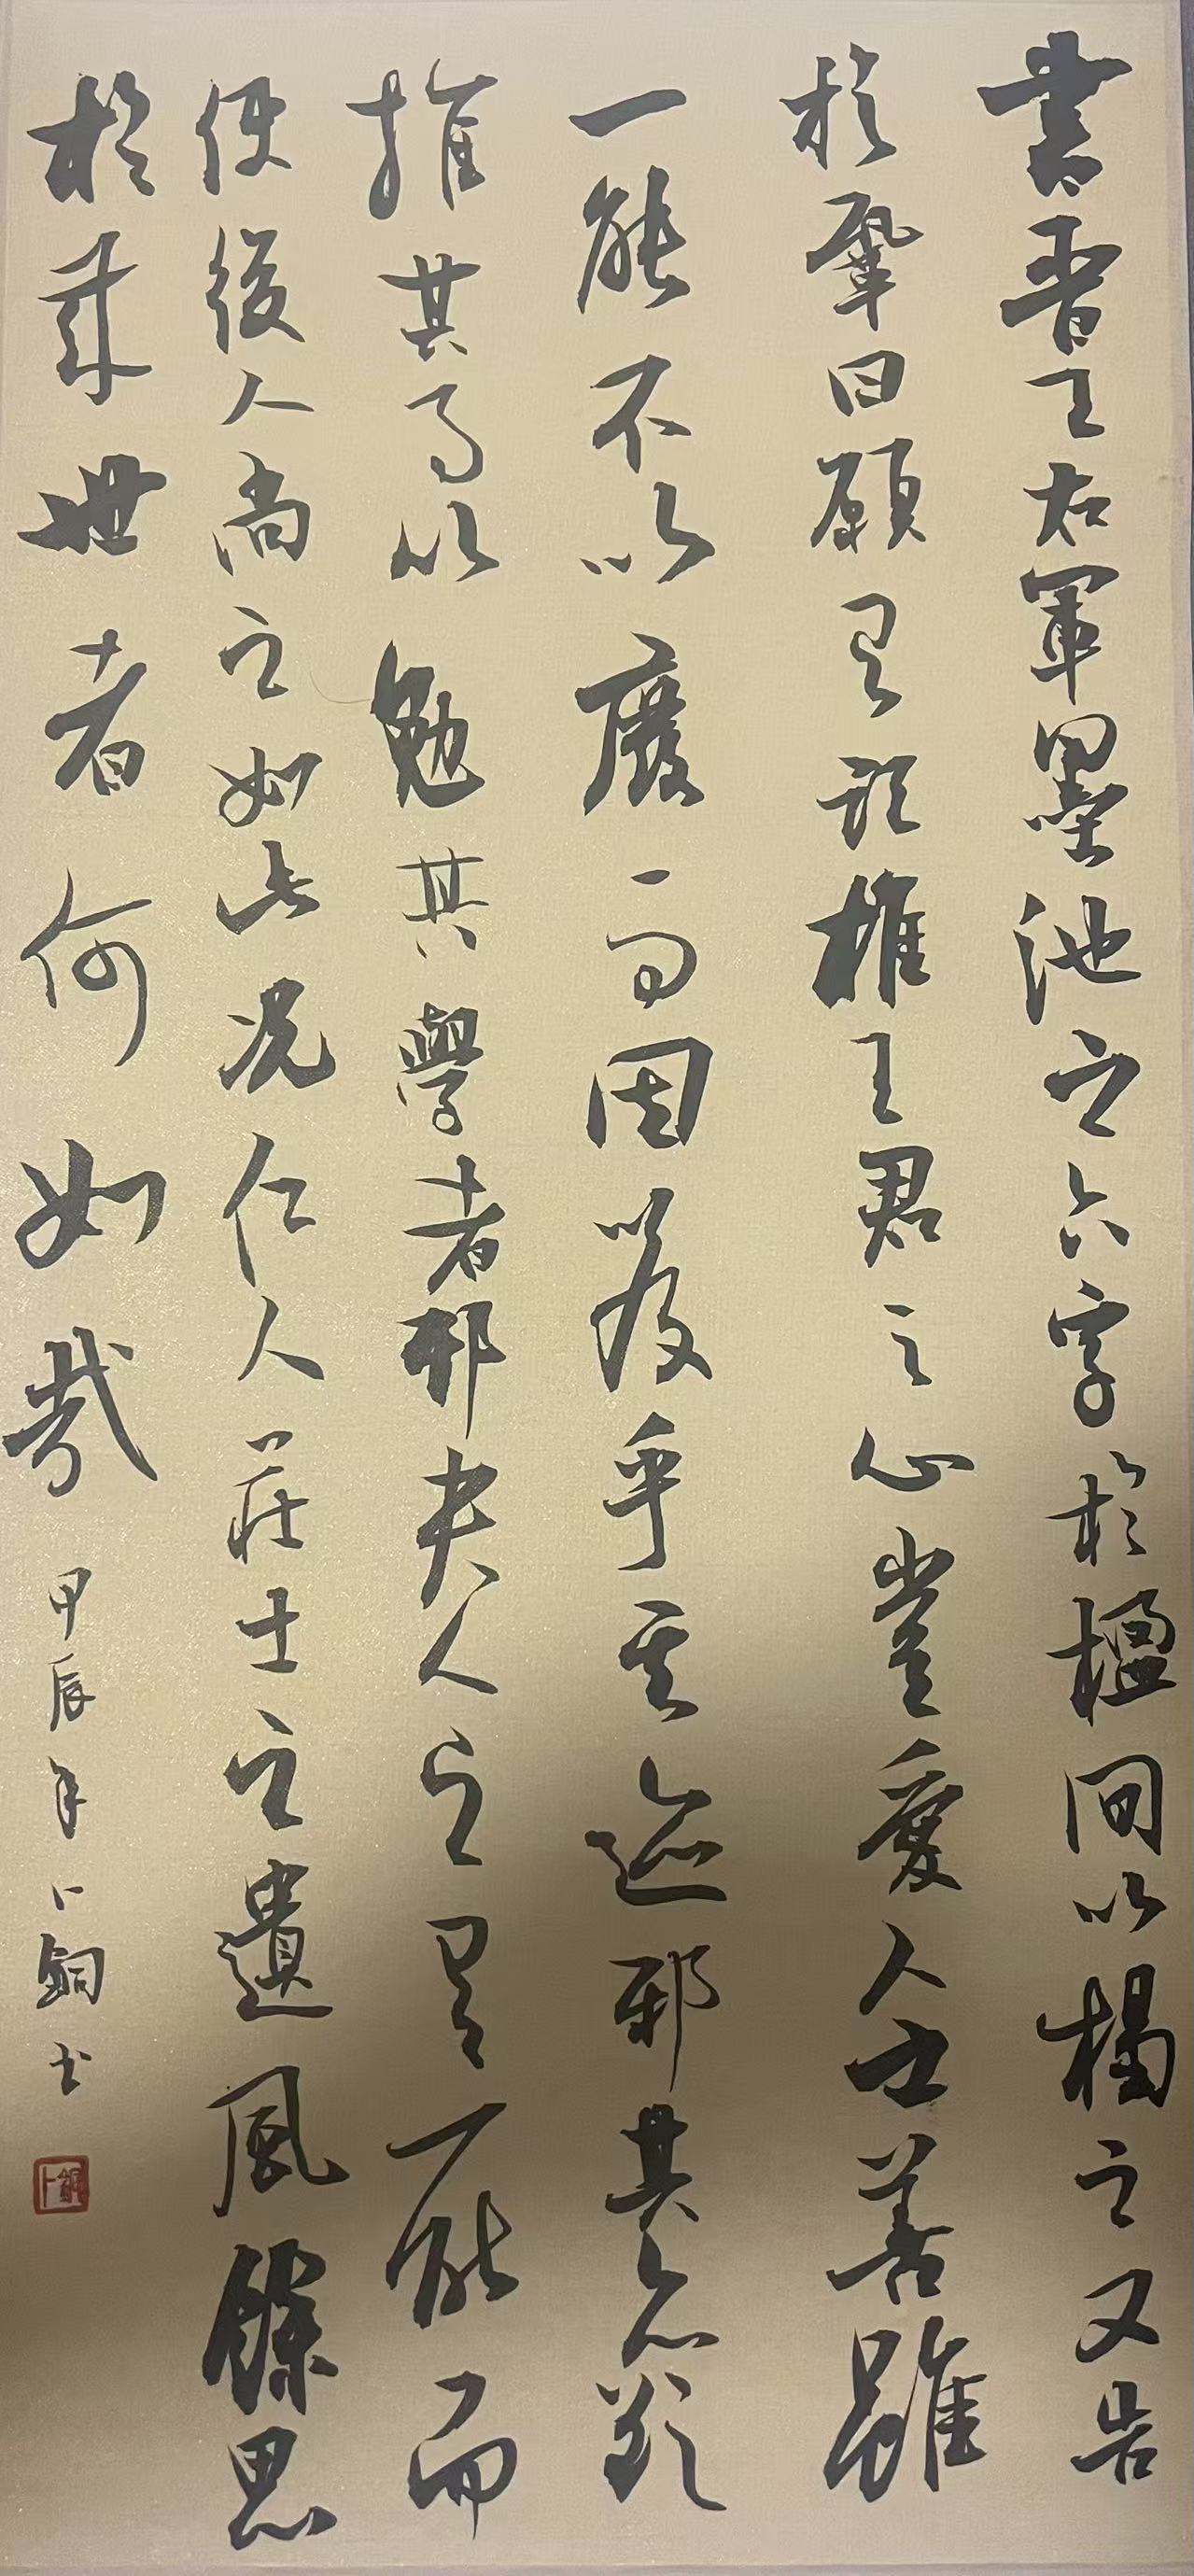 書晉王右軍墨池之六字於楹間以楬之又告
於鞏曰願有記推王君之心豈愛人之善雖
一能不以廢而因以及乎其迹邪其亦欲
推其事以勉其學者邪夫人之有一能而
使後人尚之如此況仁人莊士之遺風餘思
於來世者何如哉
甲辰年卜銅书